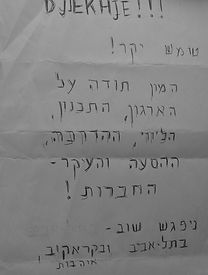 DJJEKHJE!!!
טומש יקר!
המון תודה על
הארגון, התכנון,
הליווי, ההדרכה,
ההסעה והעיקר-
החברות!
ניפגש שוב-
בתל-אביב ובקראקוב,